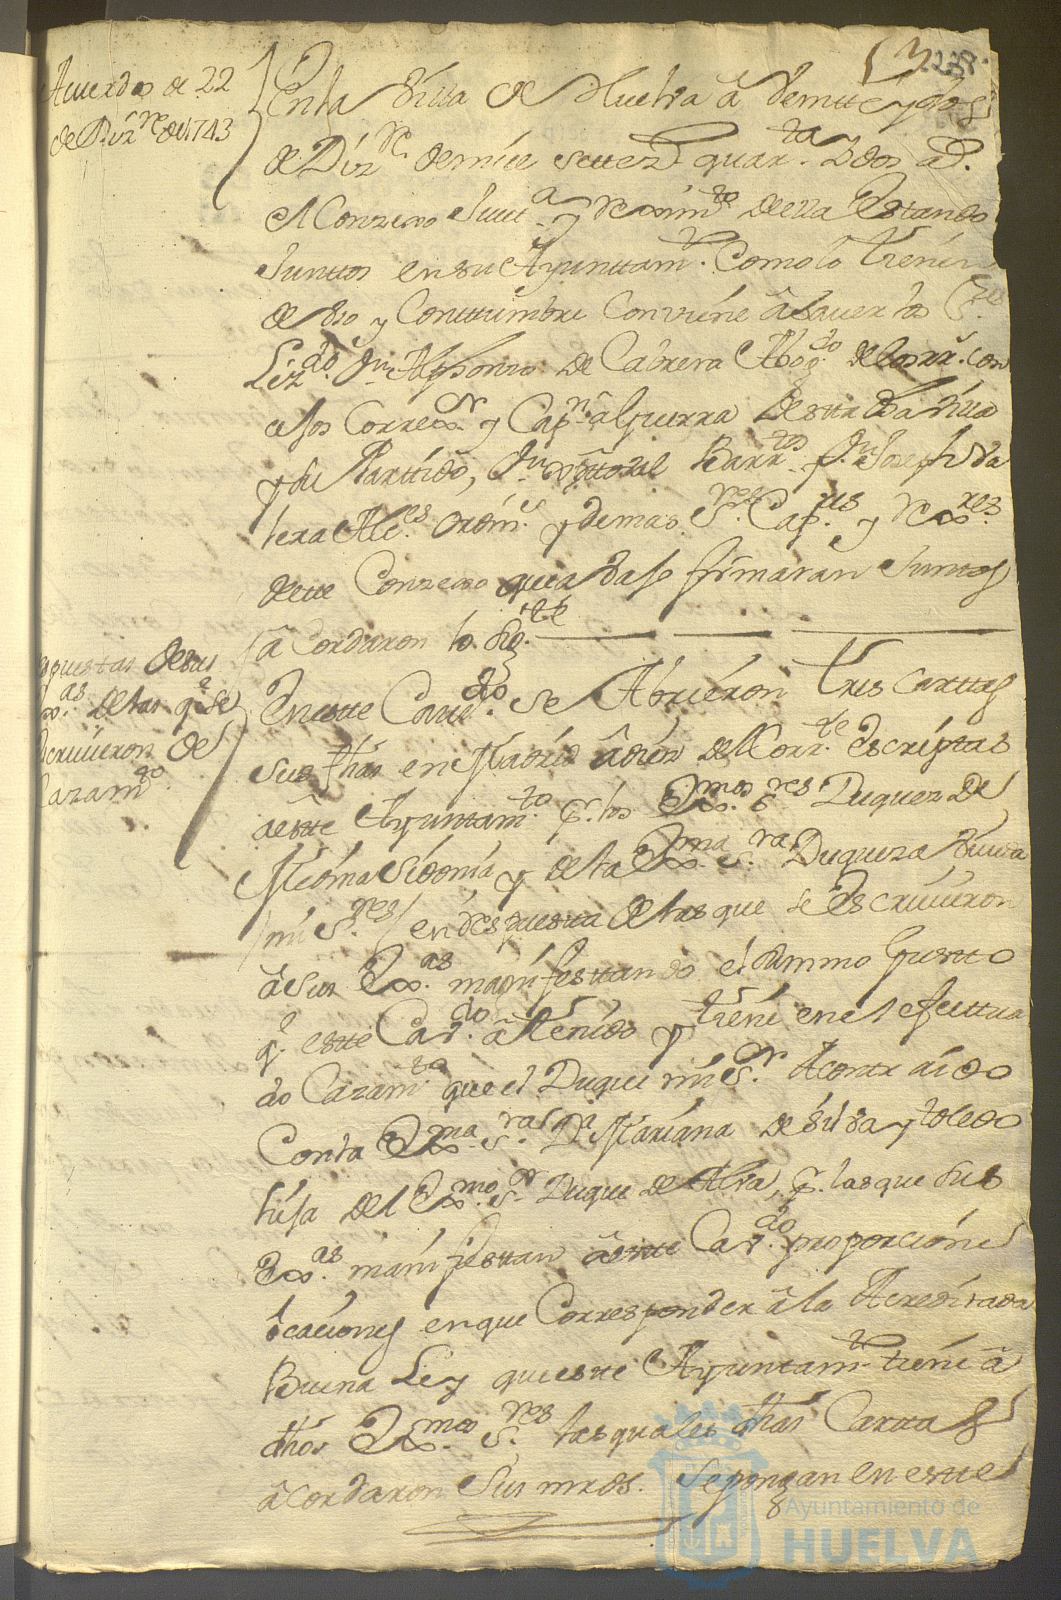 Acuerdos de 22
de Diz.re de 1743
En la Villa de Huelva â veintte y dos
de Diz.re de mill settez.s quar.ta y dos a.s
el Conzexo Justt.a y reximi.to de ella estando
Junttos en su Ayunttam.to Como lo tienen
de vso y Costtumbre Conviene â saver los S.res
Liz.do Jn. Alphonso de Cabrera Abog.do de los rr.s con
sejos Correx.or y Cap.n â guerra de estta dha Villa
y su Parttido,
y demas S.res Cap.res y rex.res
de este Conzexo que abajo firmaran Juntos
â Cordaron lo sig.te
respuestas de sus
Ex.as de las q.e se
escrivieron del
Cazam.to
En este Cavi.do se Abrieron tres carttas
sus fhas en Madrid â diez del Corr.te escriptas
â este Ayuntam.to p.r los Ex.mos S.res Duques de
Medina Sidonia y de la Ex.ma S.ra Duqueza Viuda
/mis S.res/ en respuesta de las que se escrivieron
â sus Ex.as manifestando el summo gustto
q.e este Cav.do â tenido y tiene en el efecttua
do Cazam.to que el Duque mi S.r â contraido
Con la Ex.ma S.ra D.a Mariana de Silva y toledo
hija del Ex.mo S.r Duque de Alva, p.r las que sus
Ex.as manifiestan â este Cav.do proporcione
ôcaciones en que Corresponder â la Acreditada
Buena Ley que este Ayuntam.to tiene â
dhos Ex.mos S.res las quales dhas Carttas
â cordaron Sus mrds. se pongan en este
Ayuntamiento de
HUELVA